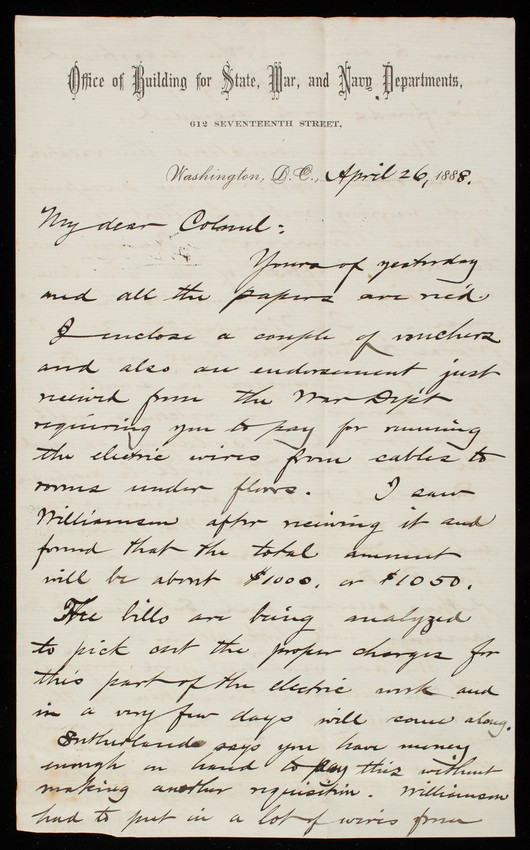 Office of Building for State, War, and Navy Departments,
612 SEVENTEENTH STREET,
Washington, D.C., April 26, 1888.
My dear Colonel:
Yours of yesterday
and all the papers are rec'd.
I enclose a couple of vouchers
and also an endorsement just
received from the War Dep't
requiring you to pay for running
the electric wires from cables to
rooms under floors. I saw
Williamson after receiving it and
found that the total amount
will be about $1000. or $1050.
The bills are being analyzed
to pick out the proper charges for
this part of the electric work and
in a very few days will come along.
Sutherland says you have money
enough on hand to pay this without
making another requisition. Williamson
had to put in a lot of wires from